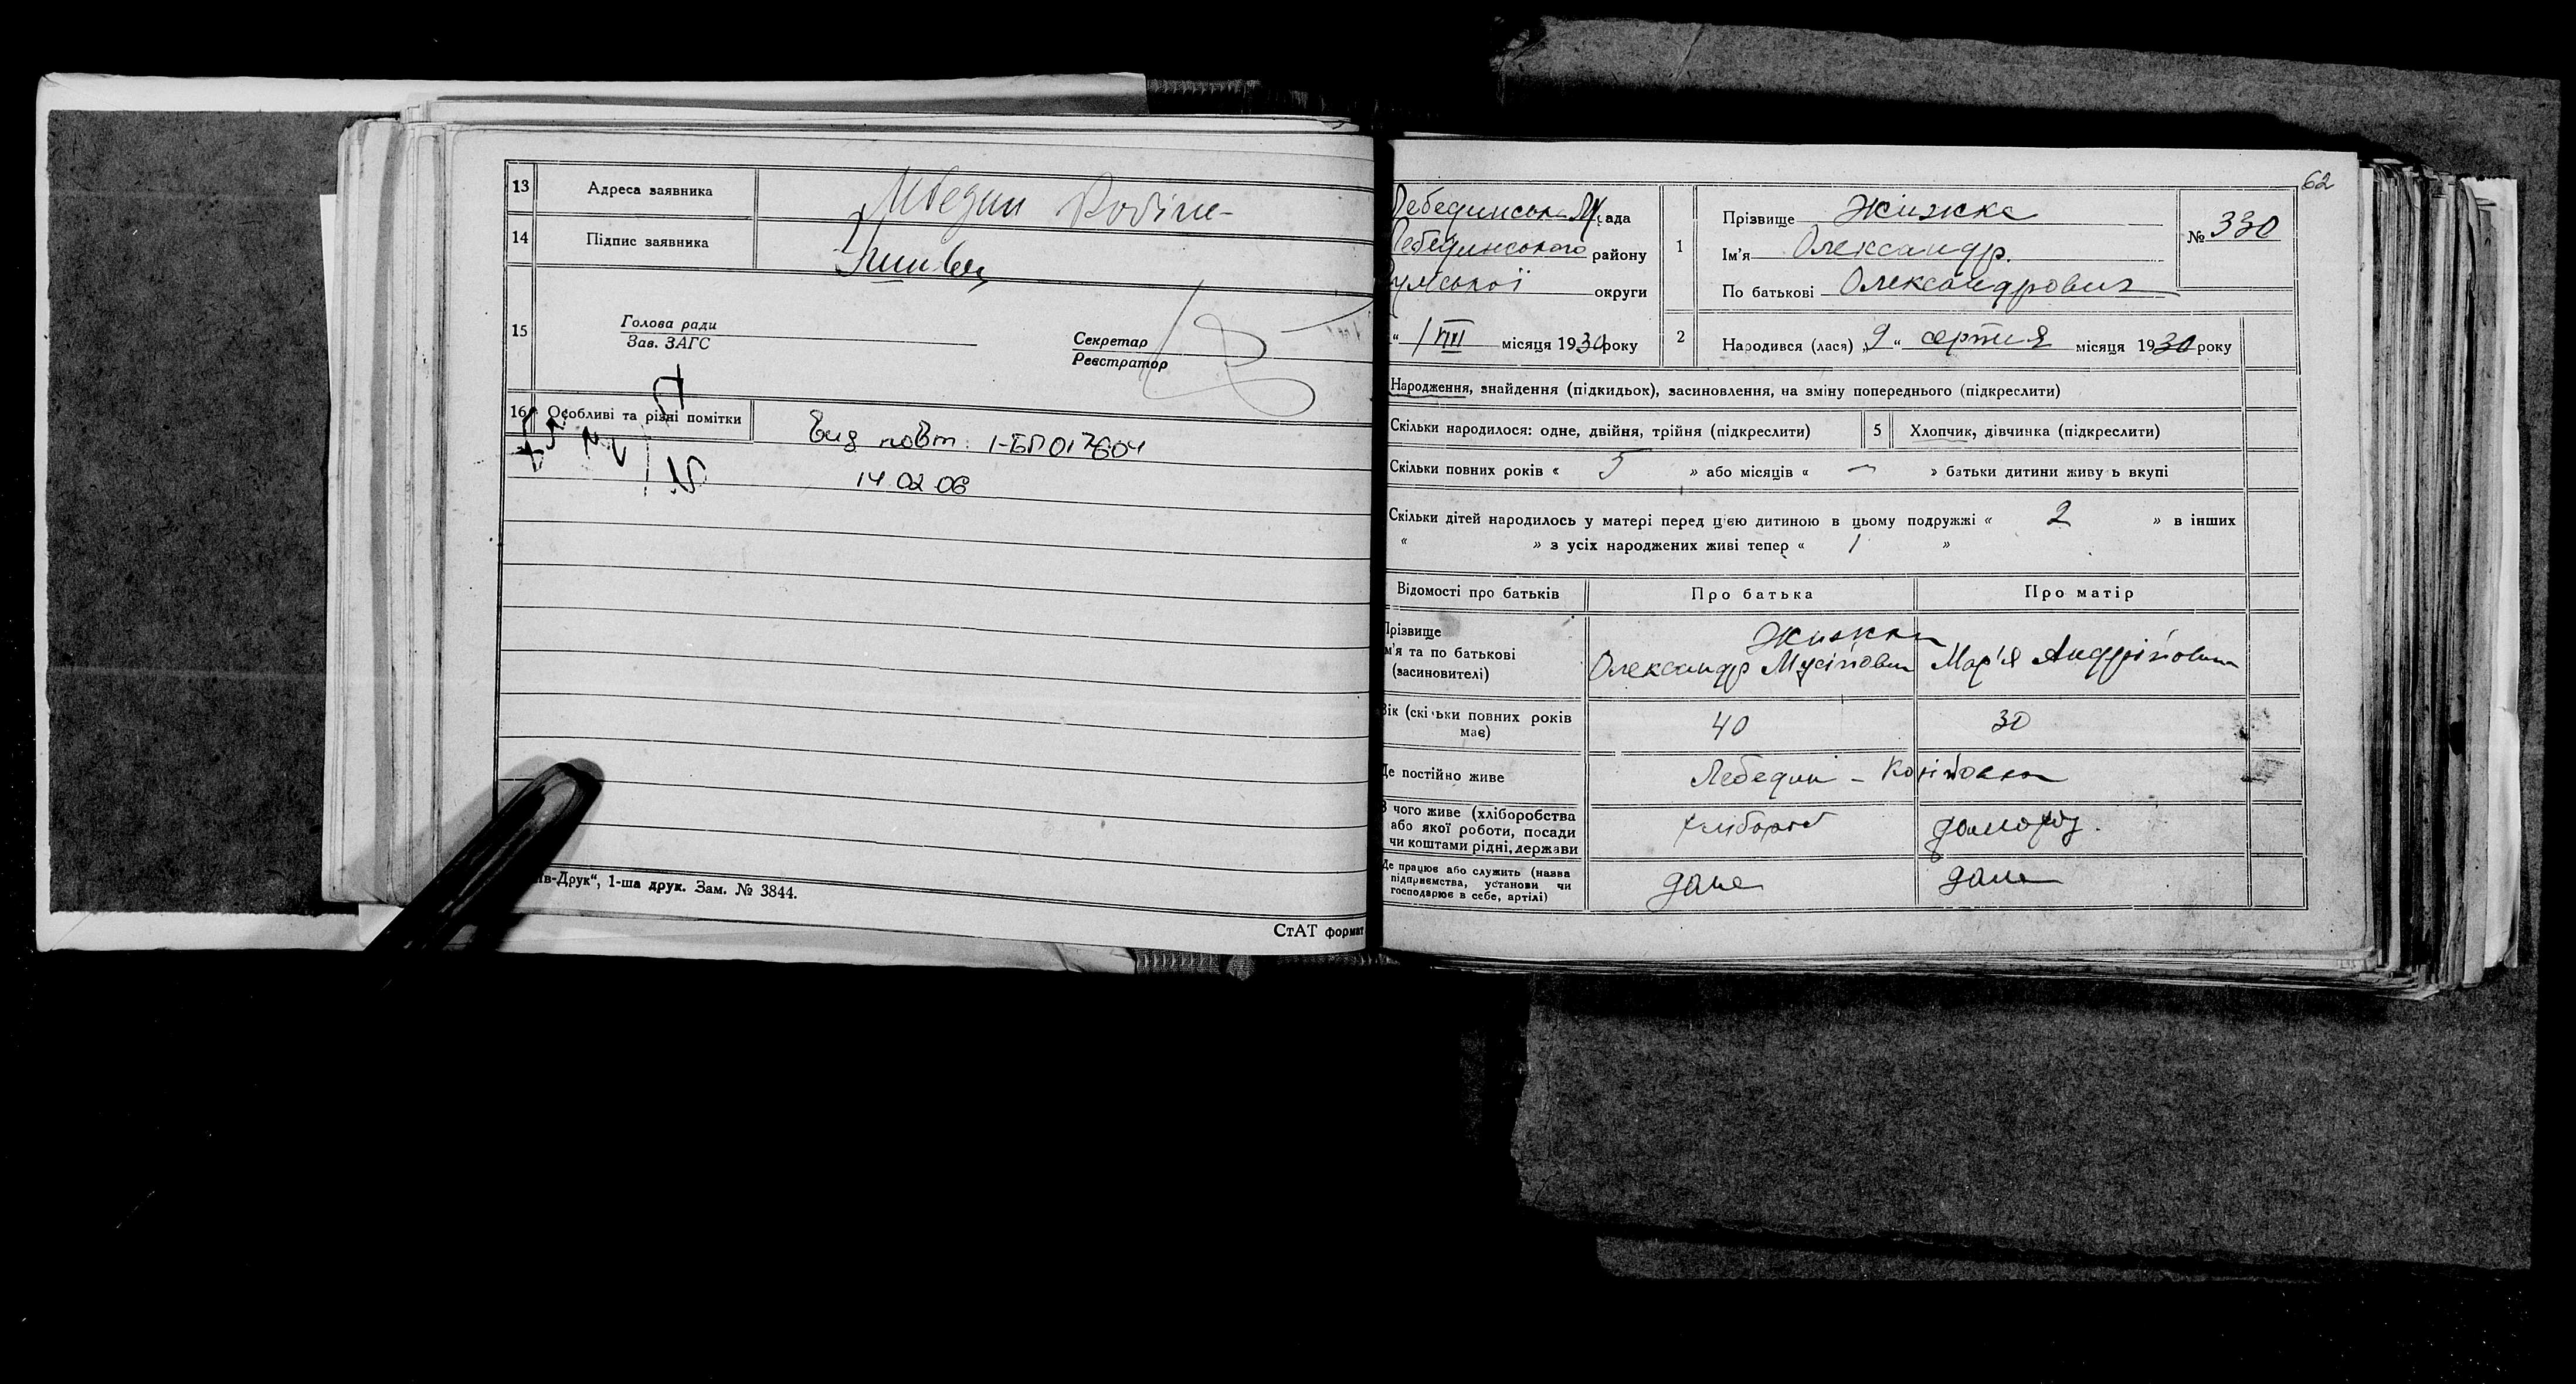 13 Адреса заявника
14 Підпис заявника
15 Голова ради
Зав. ЗАГС
Секретар
Реєстратор
16 Особливі та різні помітки Вид повт. I-БП 017604
14 02 06
в-Друк“, 1-ша друк. Зам. № 3844.
СтАТ формат
62
Лебединська М. рада
Лебединського району
Сумської округи
“ 1 VIII місяця 1930 року
1 Прізвище Жижка
Ім'я Олександр.
По батькові Олександрович
№ 330
2 Народився (лася) „9“ серпня місяця 1930 року
Народження, знайдення (підкидьок), засиновлення, на зміну попереднього (підкреслити)
Скільки народилося: одне, двійня, трійня (підкреслити) 5 Хлопчик, дівчинка (підкреслити)
Скільки повних років « 5 » або місяців « — » батьки дитини живу ь вкупі
Скільки дітей народилось у матері перед цією дитиною в цьому подружжі « 2 » в інших
« » з усіх народжених живі тепер « 1 »
Відомості про батьків Про батька Про матір
Прізвище
м'я та по батькові
(засновителі)
Жижки
Олександр Мусійович Мар'я Андріївна
Вік (скільки повних років має) 40 30
Де постійно живе Лебедин -
З чого живе (хліборобства
або якої роботи, посади
чи коштами рідні, держави
хлібороб домогосп.
Де працює або служить (назва
підприємства, установи чи
господарює в себе, артілі)
дома дома